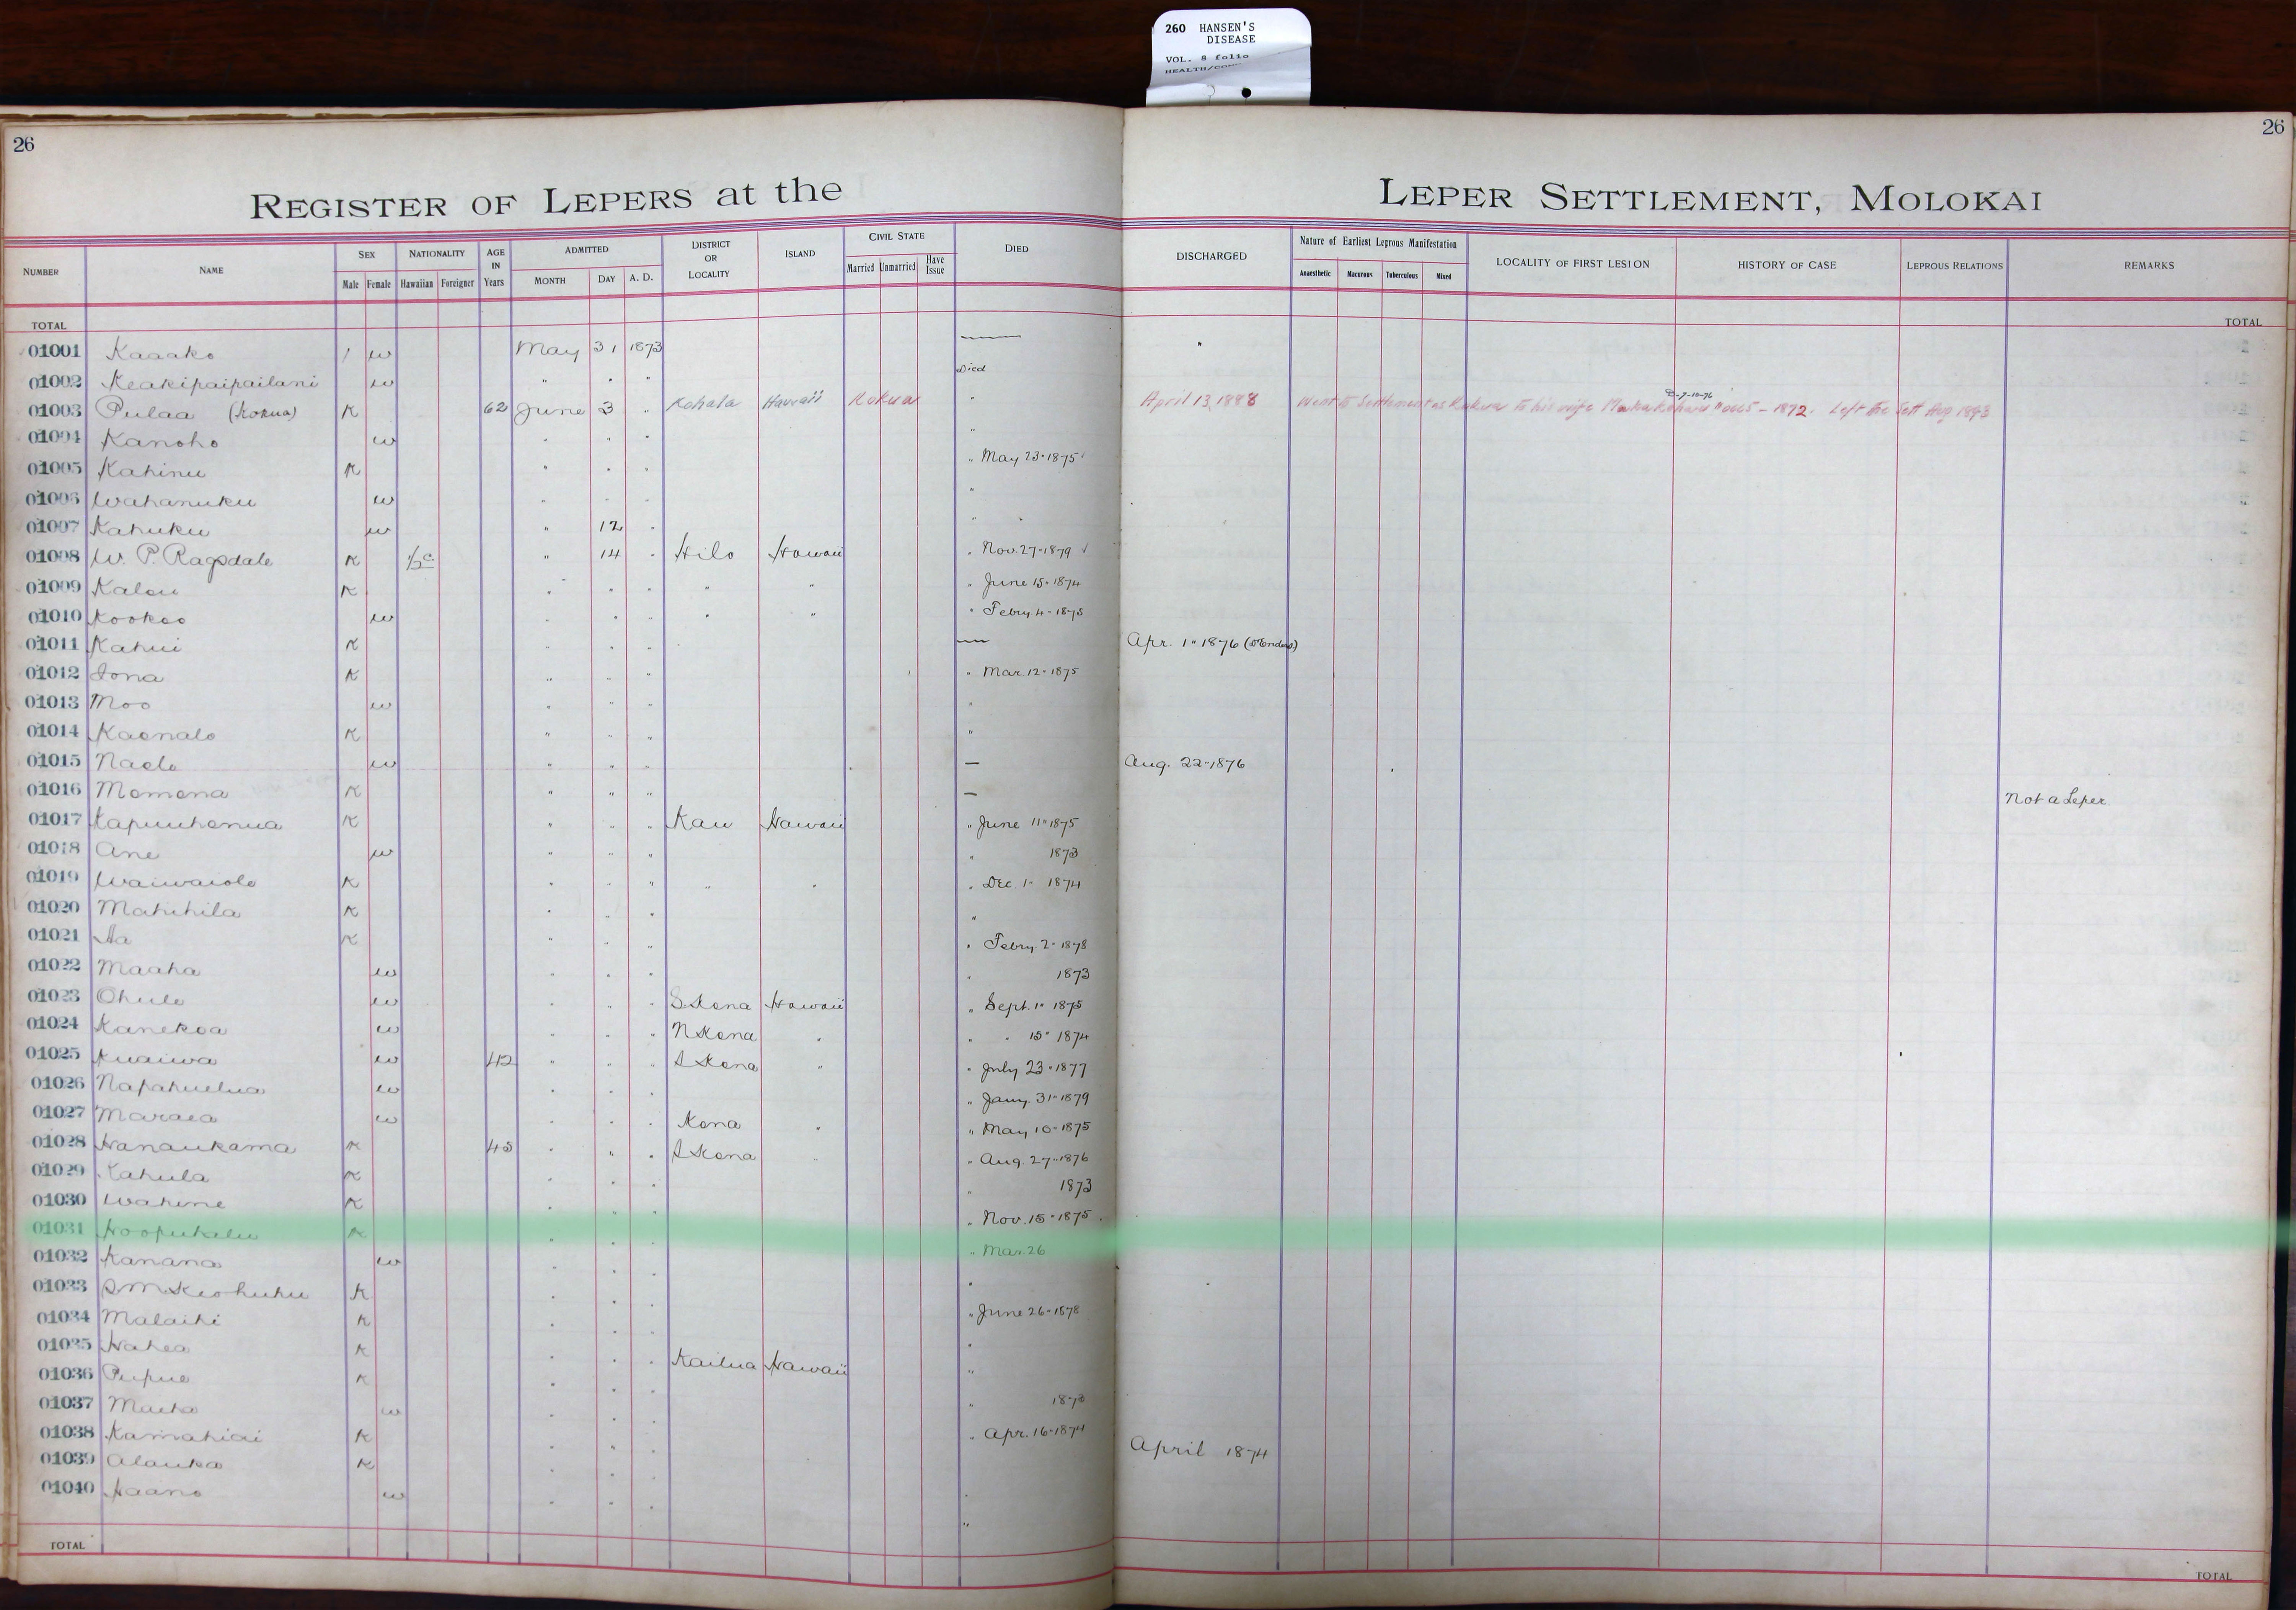 260 HANSEN'S
DISEASE
VOL. 8 folio
HEALTH/
26 26
REGISTER OF LEPERS at the LEPER SETTLEMENT, MOLOKAI
NUMBER NAME SEX Male Female NATIONALITY Hawaiian Foreigner AGE IN Years ADMITTED MONTH DAY A. D. DISTRICT OR LOCALITY ISLAND CIVIL STATE Married Unmarried Have Issue DIED DISCHARGED Nature of Earliest Leprous Manifestation Anaesthetic Macurous Tuberculous Mixed LOCALITY OF FIRST LESION HISTORY OF CASE LEPROUS RELATIONS REMARKS
TOTAL TOTAL
01001 Kaaako w May 31 1873 —
01002 Keakipaipailani w " " " Died
01003 Pulaa (Kokua) K 62 June 3 " Kohala Hawaii Kokua " April 13, 1888 Went to Settlement as Kokua to his wife 1872. Left the Sett Aug 1893
01004 Kanoho w " " " "
01005 Kahinu K " " " " May 23. 1875
01006 Wahanuku w " " " "
01007 Kahuku w " 12 " "
01008 W. P. Ragsdale K ½ c " 14 " Hilo Hawaii " Nov. 27-1879
01009 Kalou K " " " " " " June 15. 1874
01010 Kookoo w " " " " " " Febry. 4-1875
01011 Kahui K " " " — Apr. 1" 1876
01012 Iona K " " " " Mar. 12. 1875
01013 Moo w " " " "
01014 Kaonalo K " " " "
01015 Naelo w " " " — Aug. 22-1876
01016 Momona K " " " — Not a Leper
01017 Kapuuhonua K " " " Kau Hawaii " June 11" 1875
01018 Ane w " " " " 1873
01019 Waiwaiole K " " " " " " Dec. 1- 1874
01020 Mahihila K " " " "
01021 Aa K " " " " Febry. 2. 1878
01022 Maaha w " " " " 1873
01023 Ohule w " " " S. Kona Hawaii " Sept. 1" 1875
01024 Kanekoa w " " " N Kona " " " 15" 1874
01025 Kuaiwa w 42 " " " S Kona " " July 23. 1877
01026 Napahuelua w " " " " Jany. 31" 1879
01027 Maraea w " " " Kona " " May 10-1875
01028 Hanaukama K 45 " " " S Kona " " Aug. 27. 1876
01029 Kahula K " " " " 1873
01030 Wahine K " " " " Nov. 15" 1875
01031 Hoopukalu K " " " " Mar. 26
01032 Kanana w " " " "
01033 K " " " " June 26-1878
01034 Malaihi K " " " "
01035 Hahea K " " " Kailua Hawaii "
01036 Pupue K " " " " 1873
01037 w " " " " Apr. 16-1874
01038 Kamahiai K " " " April 1874
01039 Alauka K " " " "
01040 Haano w " " " "
TOTAL TOTAL